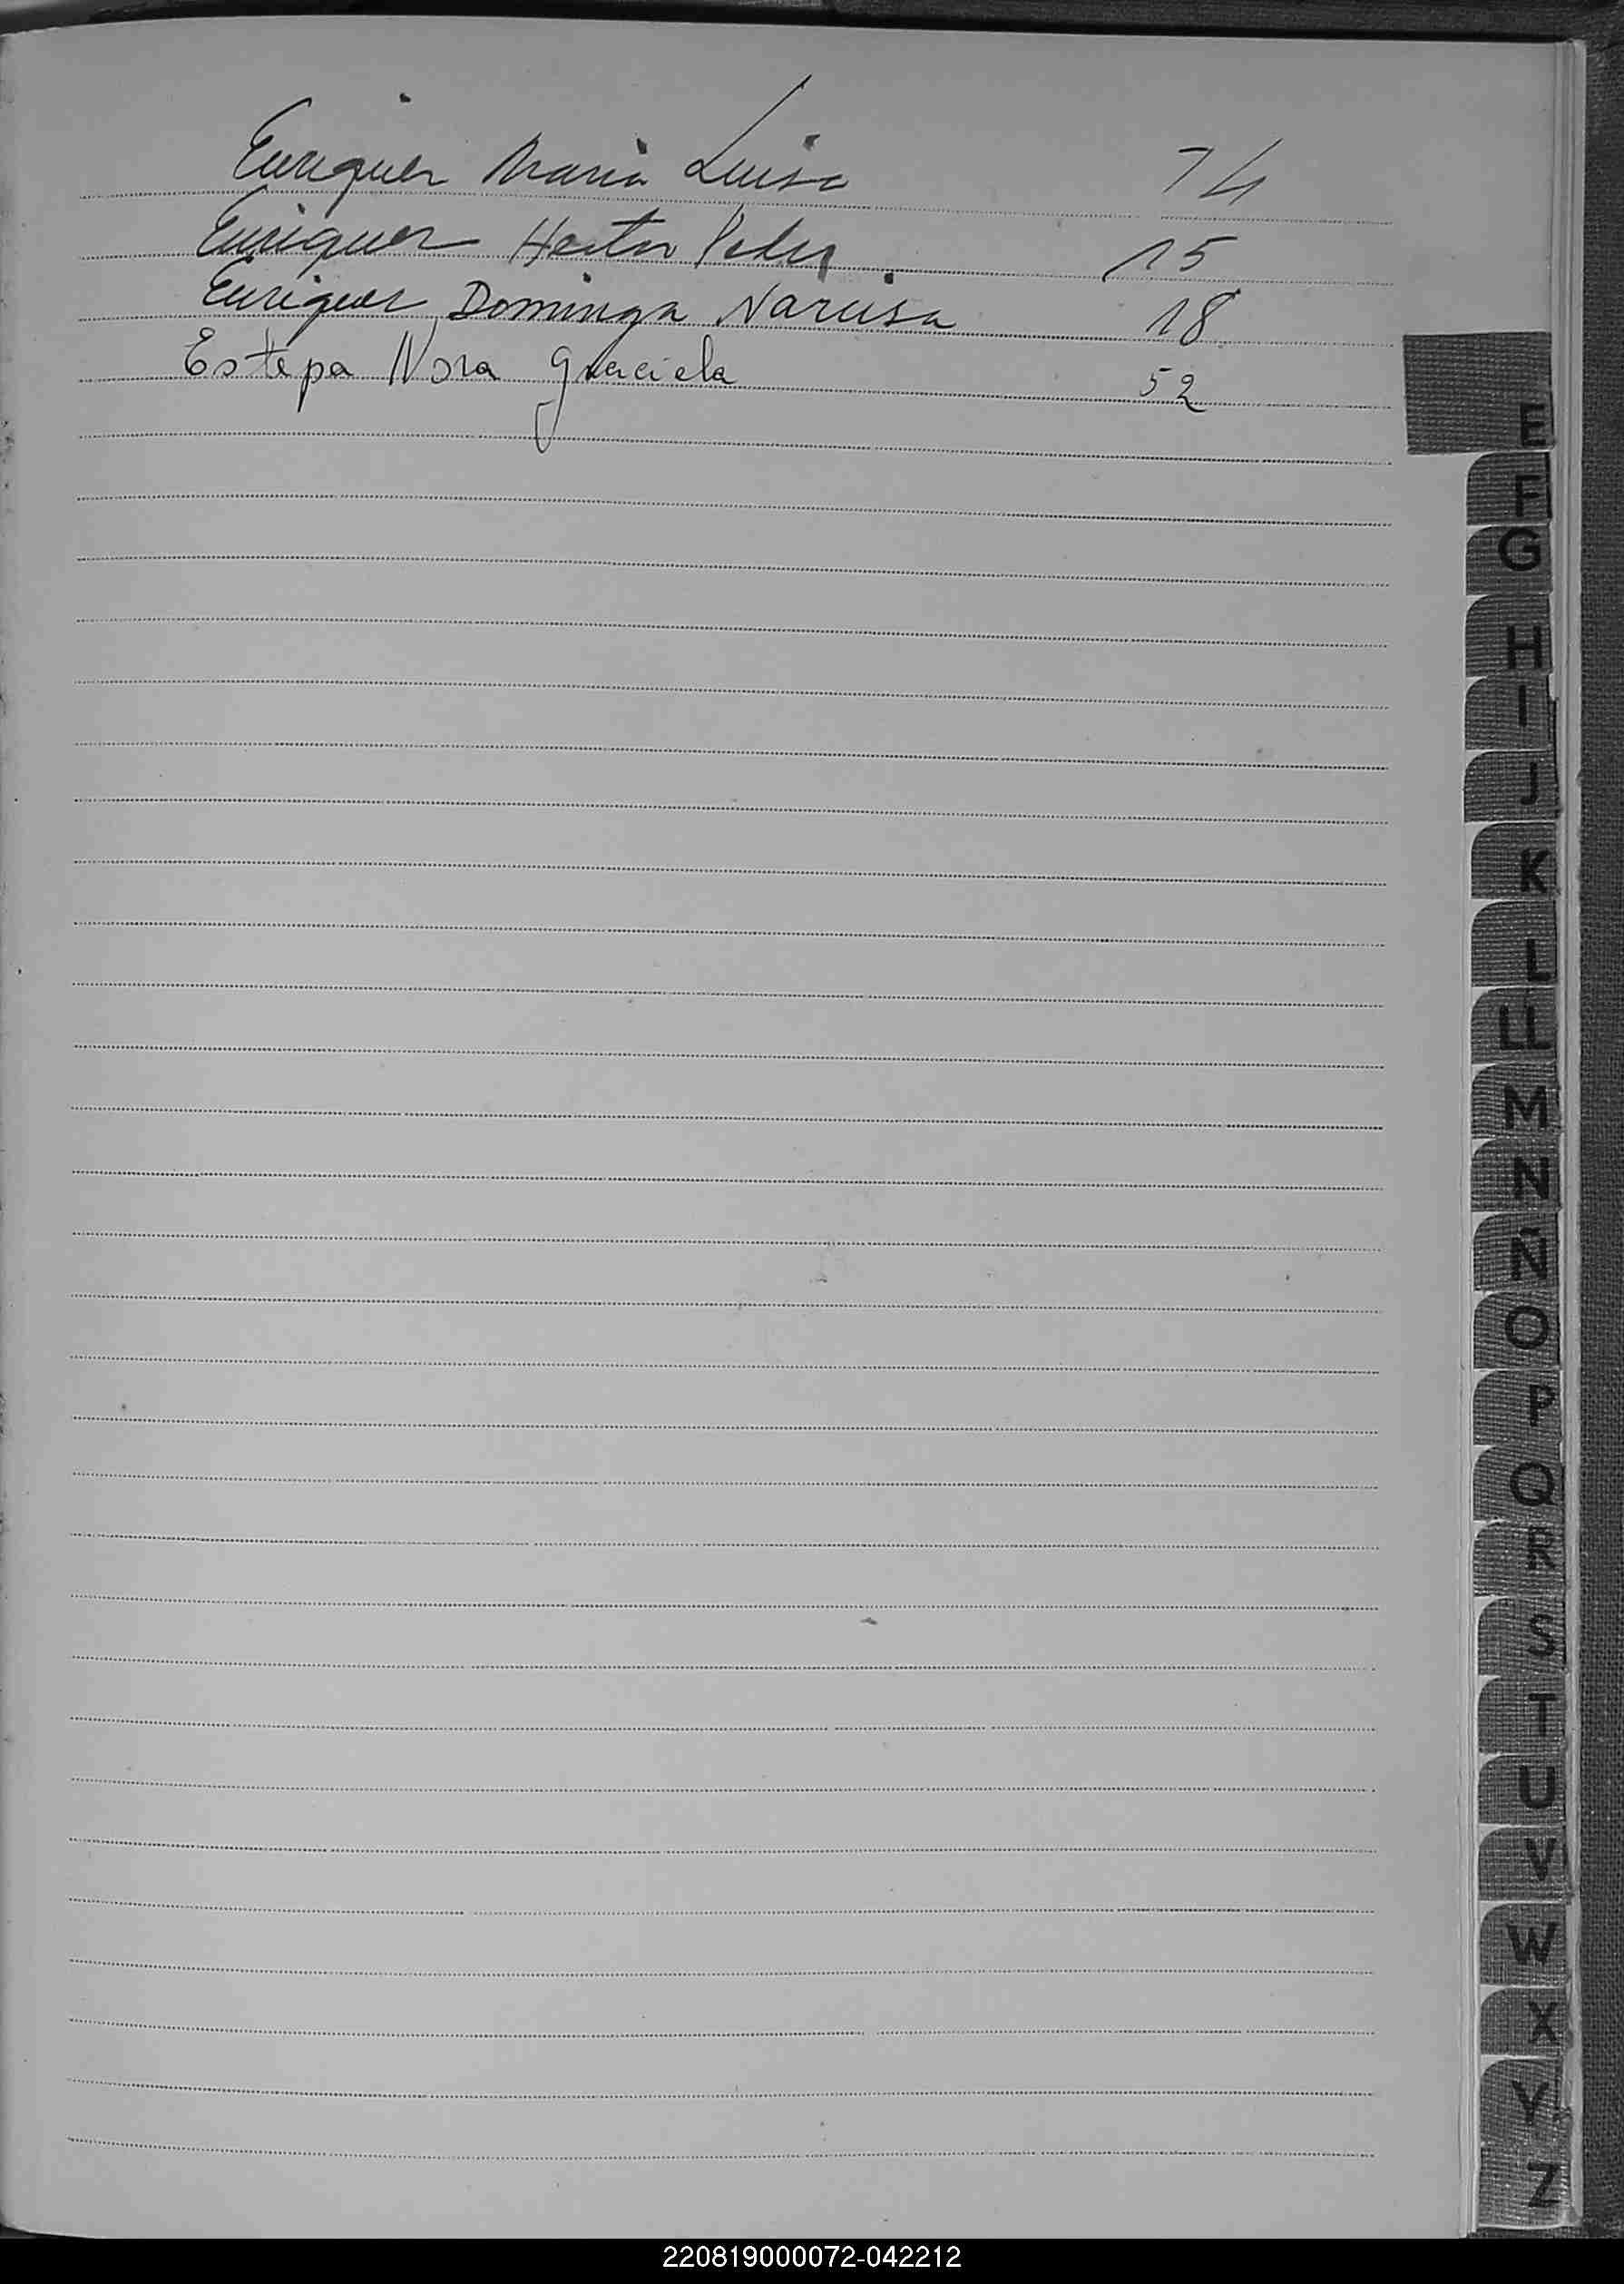 Enriquez Maria Luisa 74
Enriquez Hector Pedro 15
Enriquez Dominga Narcisa 18
Estepa Nora Graciela 52
E
F
G
H
I
J
K
L
LL
M
N
Ñ
O
P
Q
R
S
T
U
V
W
X
Y
Z
220819000072-042212